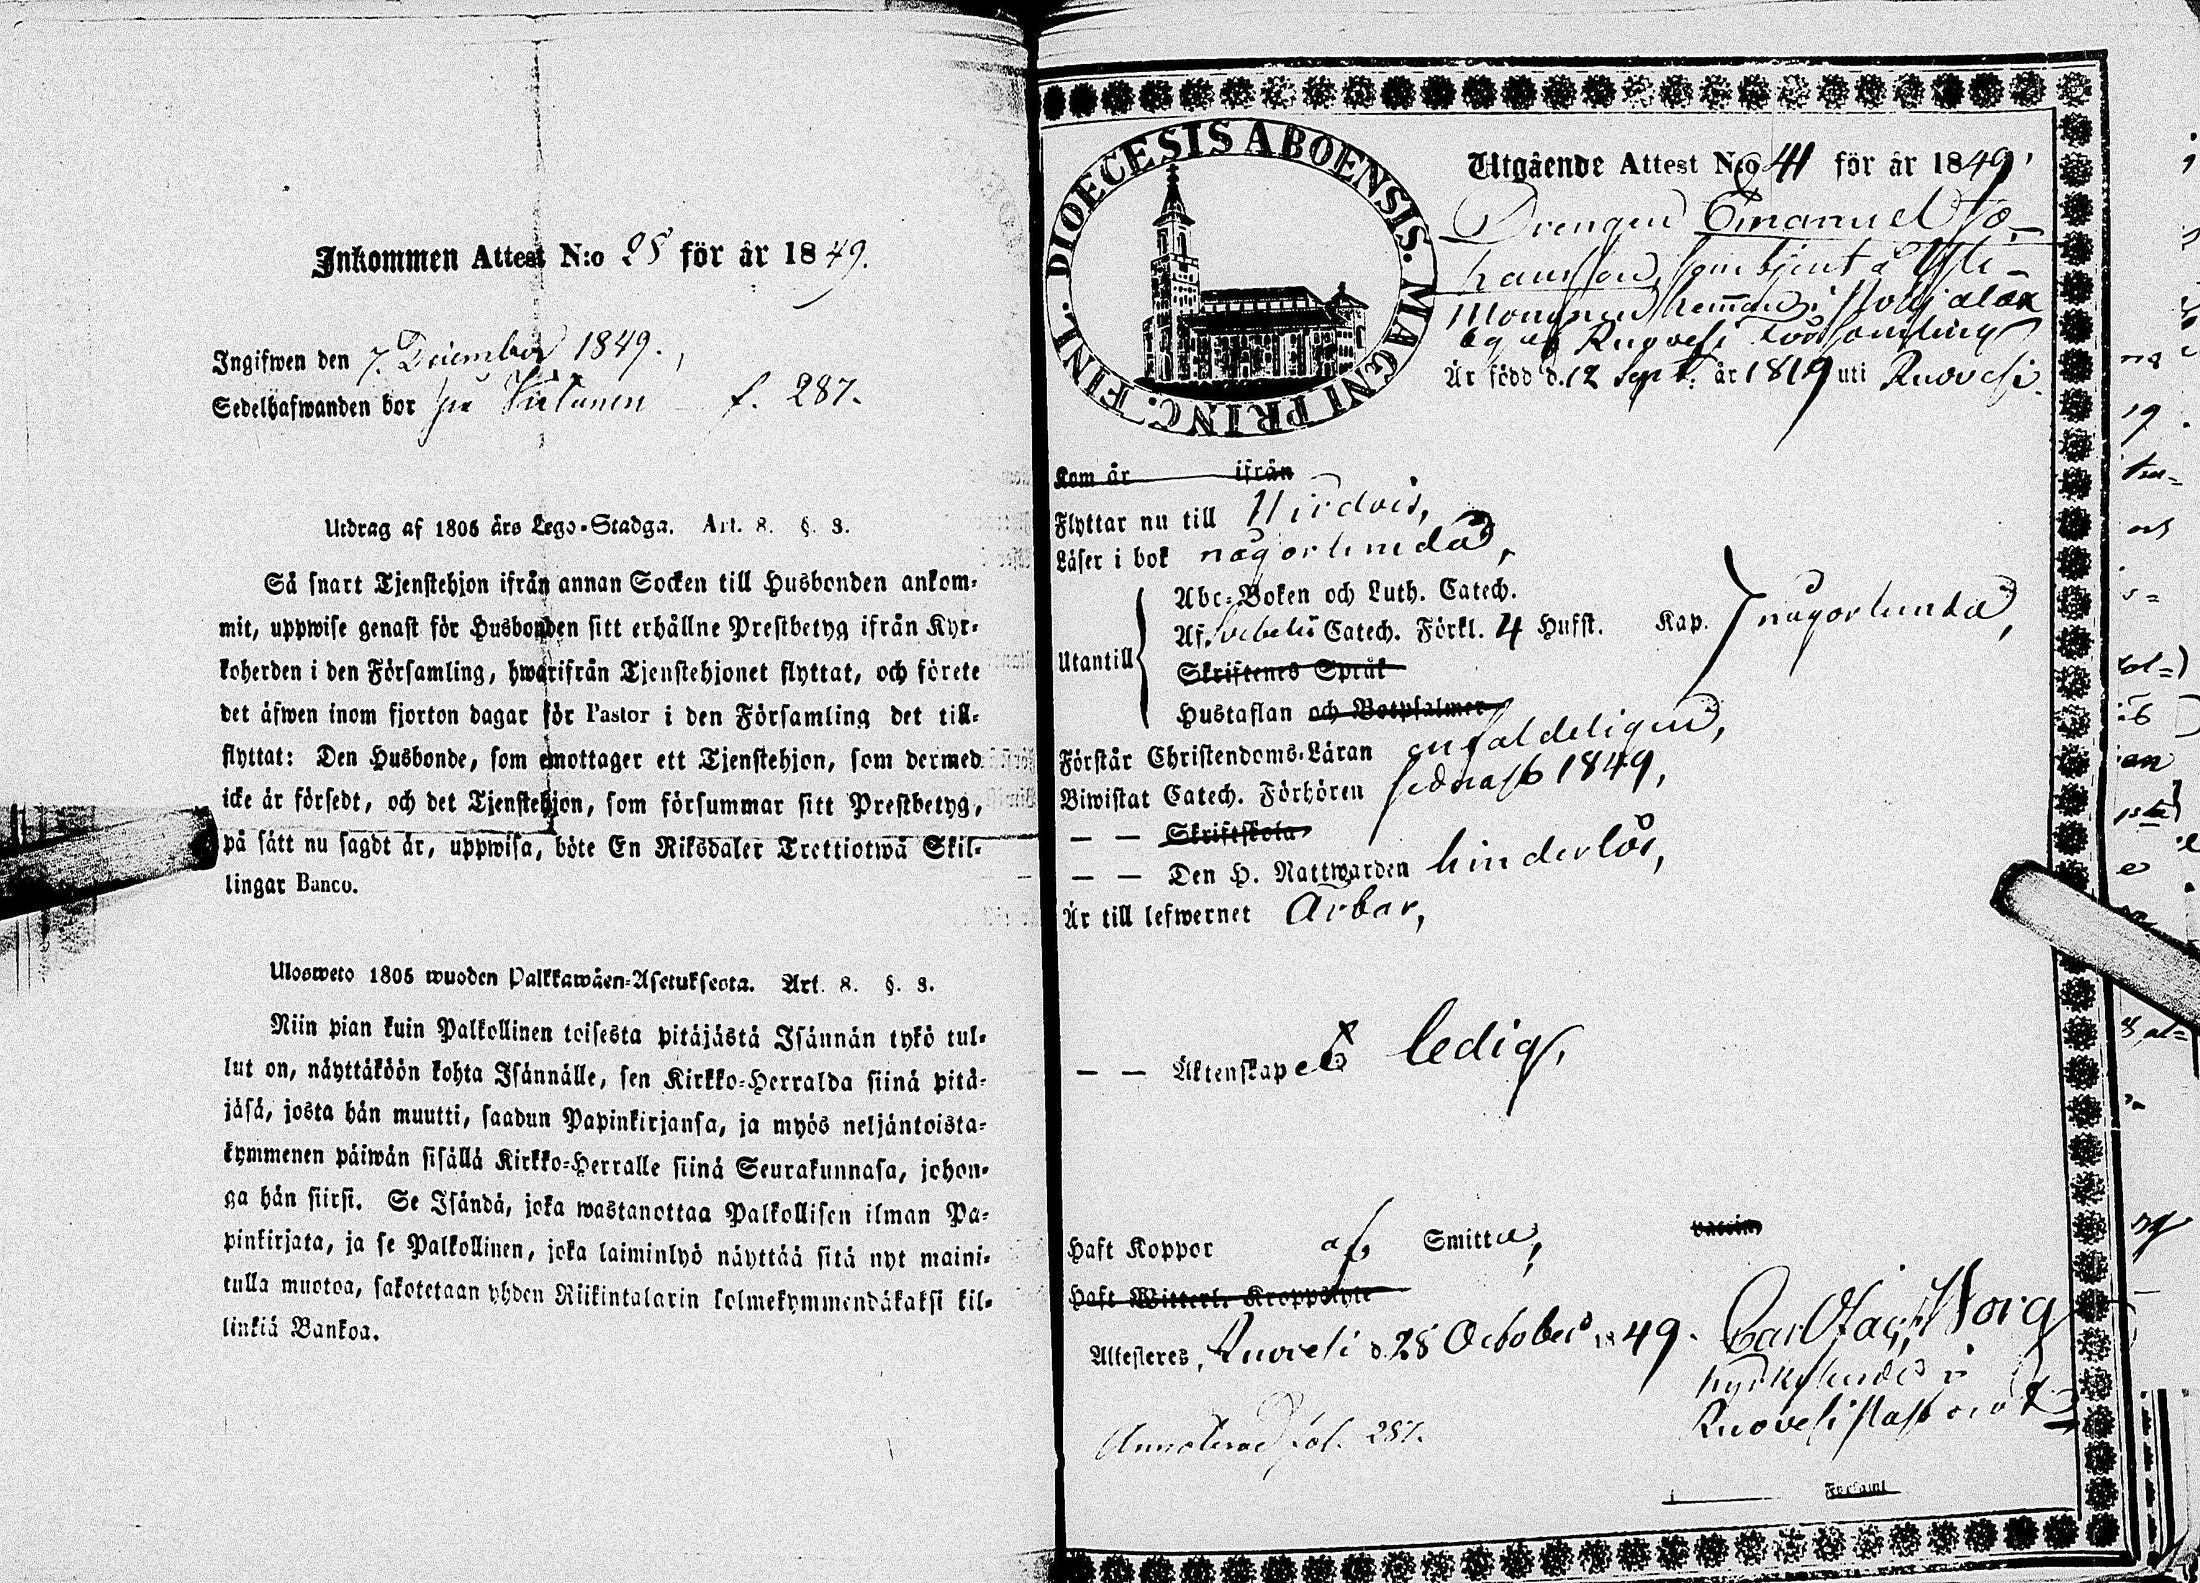 Inkommen Attest N:o 25 för år 1849.
Ingifwen den 7. December 1849.
Sedelhafwanden bor på f. 287.
Utdrag af 1805 års Lego-Stadga. Art. 8. §. 3.
Så snart Tjenstehjon ifrån annan Socken till Husbonden ankom-
mit, uppwise genast för Husbonden sitt erhållne Prestbetyg ifrån Kyr-
koherden i den Församling, hwarifrån Tjenstehjonet flyttat, och förete
det äfwen inom fjorton dagar för Pastor i den Församling det till-
flyttat: Den Husbonde, som emottager ett Tjenstehjon, som dermed
icke är försedt, och det Tjenstehjon, som försummar sitt Prestbetyg,
på sätt nu sagdt är, uppwisa, böte En Riksdaler Trettiotwå Skil-
lingar Banco.
Ulosweto 1805 wuoden Palkkawäen-Asetuksesta. Art. 8. §. 3.
Niin pian kuin Palkollinen toisesta pitäjästä Isännän tykö tul-
lut on, näyttäköön kohta Isännälle, sen Kirkko-Herralda siinä pitä-
jäsä, josta hän muutti, saadun Papinkirjansa, ja myös neljäntoista-
kymmenen päiwän sisällä Kirkko-Herralle siinä Seurakunnasa, johon-
ga hän siirsi. Se Isändä, joka wastanottaa Palkollisen ilman Pa-
pinkirjata, ja se Palkollinen, joka laiminlyö näyttää sitä nyt maini-
tulla muotoa, sakotetaan yhden Riikintalarin kolmekymmendäkaksi kil-
linkiä Bankoa.
DIOECESIS ABOENSIS. MAGNI PRINC. FINL.
Utgående Attest N:o 41 för år 1849,
Drengen Emanuel Jo-
hansson, som tjent å Yli-
hemman i Pohjalax
by af Ruovesi församling
Är född d. 12 Sept. år 1819 uti Ruovesi.
Kom år ifrån
Flyttar nu till Wirdois,
Läser i bok någorlunda,
Utantill
Abc-Boken och Luth. Catech.
Af Svebelii Catech. Förkl. 4 Hufst. Kap. någorlunda,
Skriftenes Språk
Hustaflan och Botpsalmer
Förstår Christendoms-Läran enfaldeligen,
Biwistat Catech. Förhören sednast 1849,
— — Skriftskola
— — Den H. Nattwarden hinderlös,
Är till lefwernet Ärbar,
— — Äktenskapet ledig,
Haft Koppor af Smitta, vaccin
Haft Witterl. Kroppslyte
Attesteres, Ruovesi d. 28 October 1849. Carl Borg
Kyrkoherde i
Ruovesi
Annoterad fol. 287.
Församl